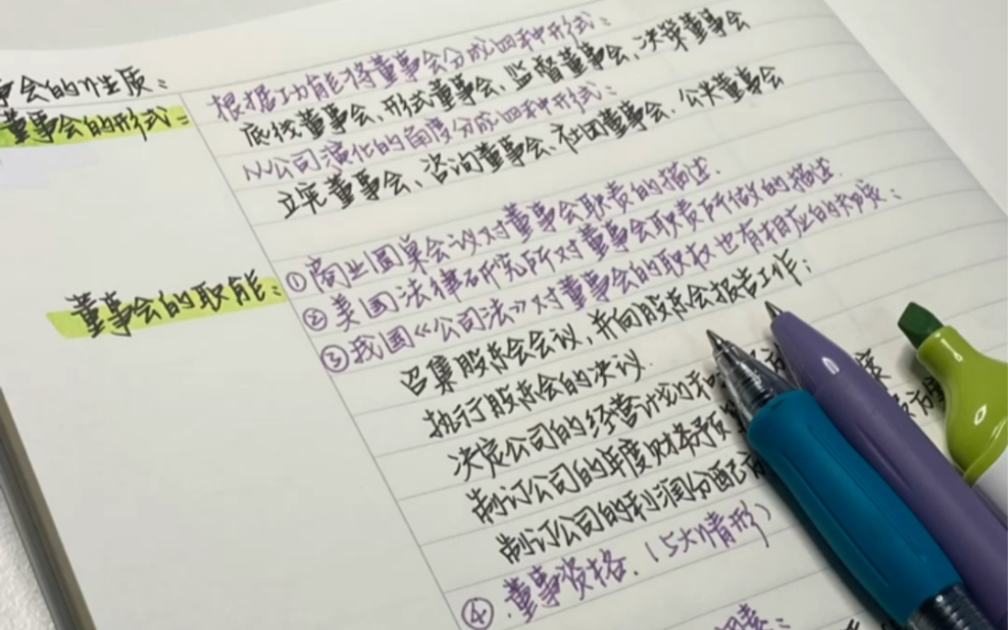 事会的性质：
董事会的形式：
根据功能将董事会分成四种形式：
底线董事会、形式董事会、监督董事会、决策董事会
从公司演化的角度分成四种形式：
立宪董事会、咨询董事会、社团董事会、公共董事会
董事会的职能：
①商业圆桌会议对董事会职责的描述.
②美国法律研究所对董事会职责所做的描述.
③我国《公司法》对董事会的职权也有相应的规定：
召集股东会会议，并向股东会报告工作；
执行股东会的决议.
决定公司的经营计划和
制订公司的年度财务预
制订公司的利润分配
④.董事资格.（5大情形）